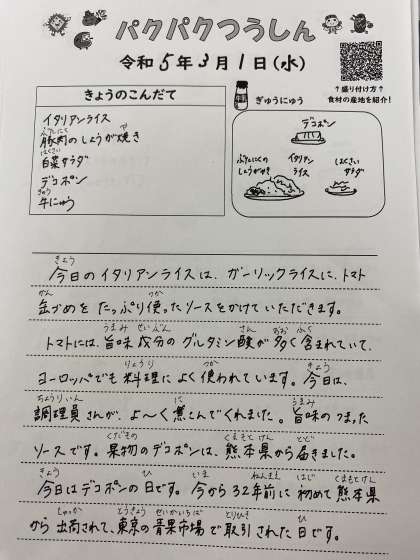 パクパクつうしん
令和5年3月1日(水)
↑盛り付け方↑
食材の産地を紹介!
きょうのこんだて
イタリアンライス
豚肉のしょうが焼き
白菜サラダ
デコポン
牛にゅう
ぎゅうにゅう
デコポン
ぶたにくの
しょうがやき
イタリアン
ライス
はくさい
サラダ
今日のイタリアンライスは、ガーリックライスに、トマト
缶づめをたっぷり使ったソースをかけていただきます。
トマトには、旨味成分のグルタミン酸が多く含まれていて、
ヨーロッパでも料理によく使われています。今日は、
調理員さんが、よ〜く煮こんでくれました。旨味のつまった
ソースです。果物のデコポンは、熊本県から届きました。
今日はデコポンの日です。今から32年前に初めて熊本県
から出荷されて、東京の青果市場で取引された日です。